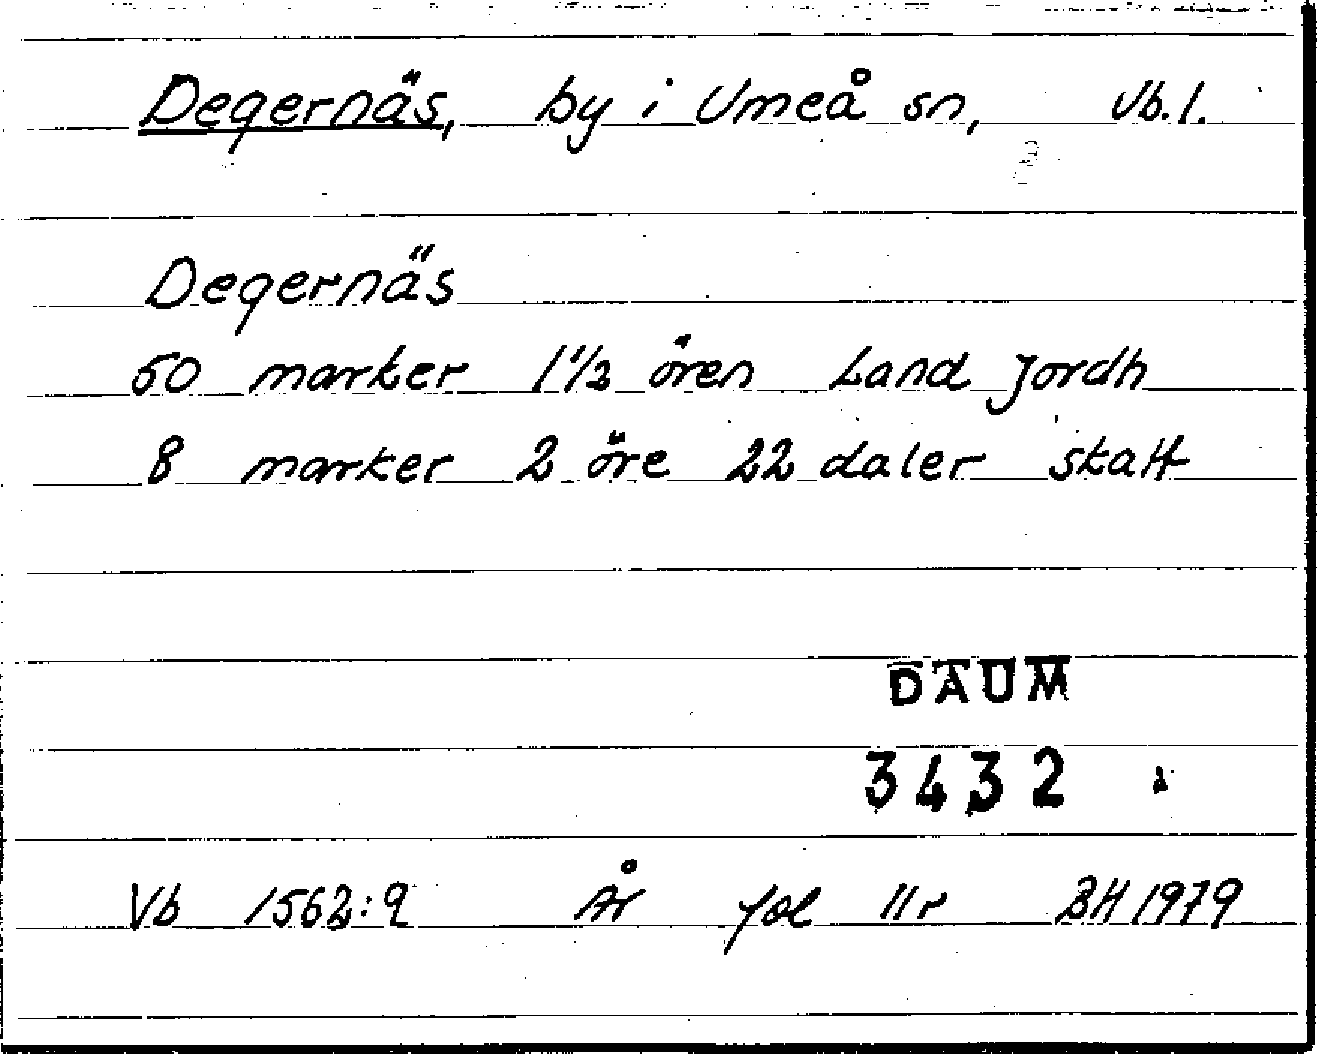 Degernäs, by i Umeå sn, Vb. l.
Degernäs
50 marker 1 1/2 ören Land Jordh
8 marker 2 öre 22 daler skatt
DAUM
3432
Vb 1562:9 År fol 11r BH 1979